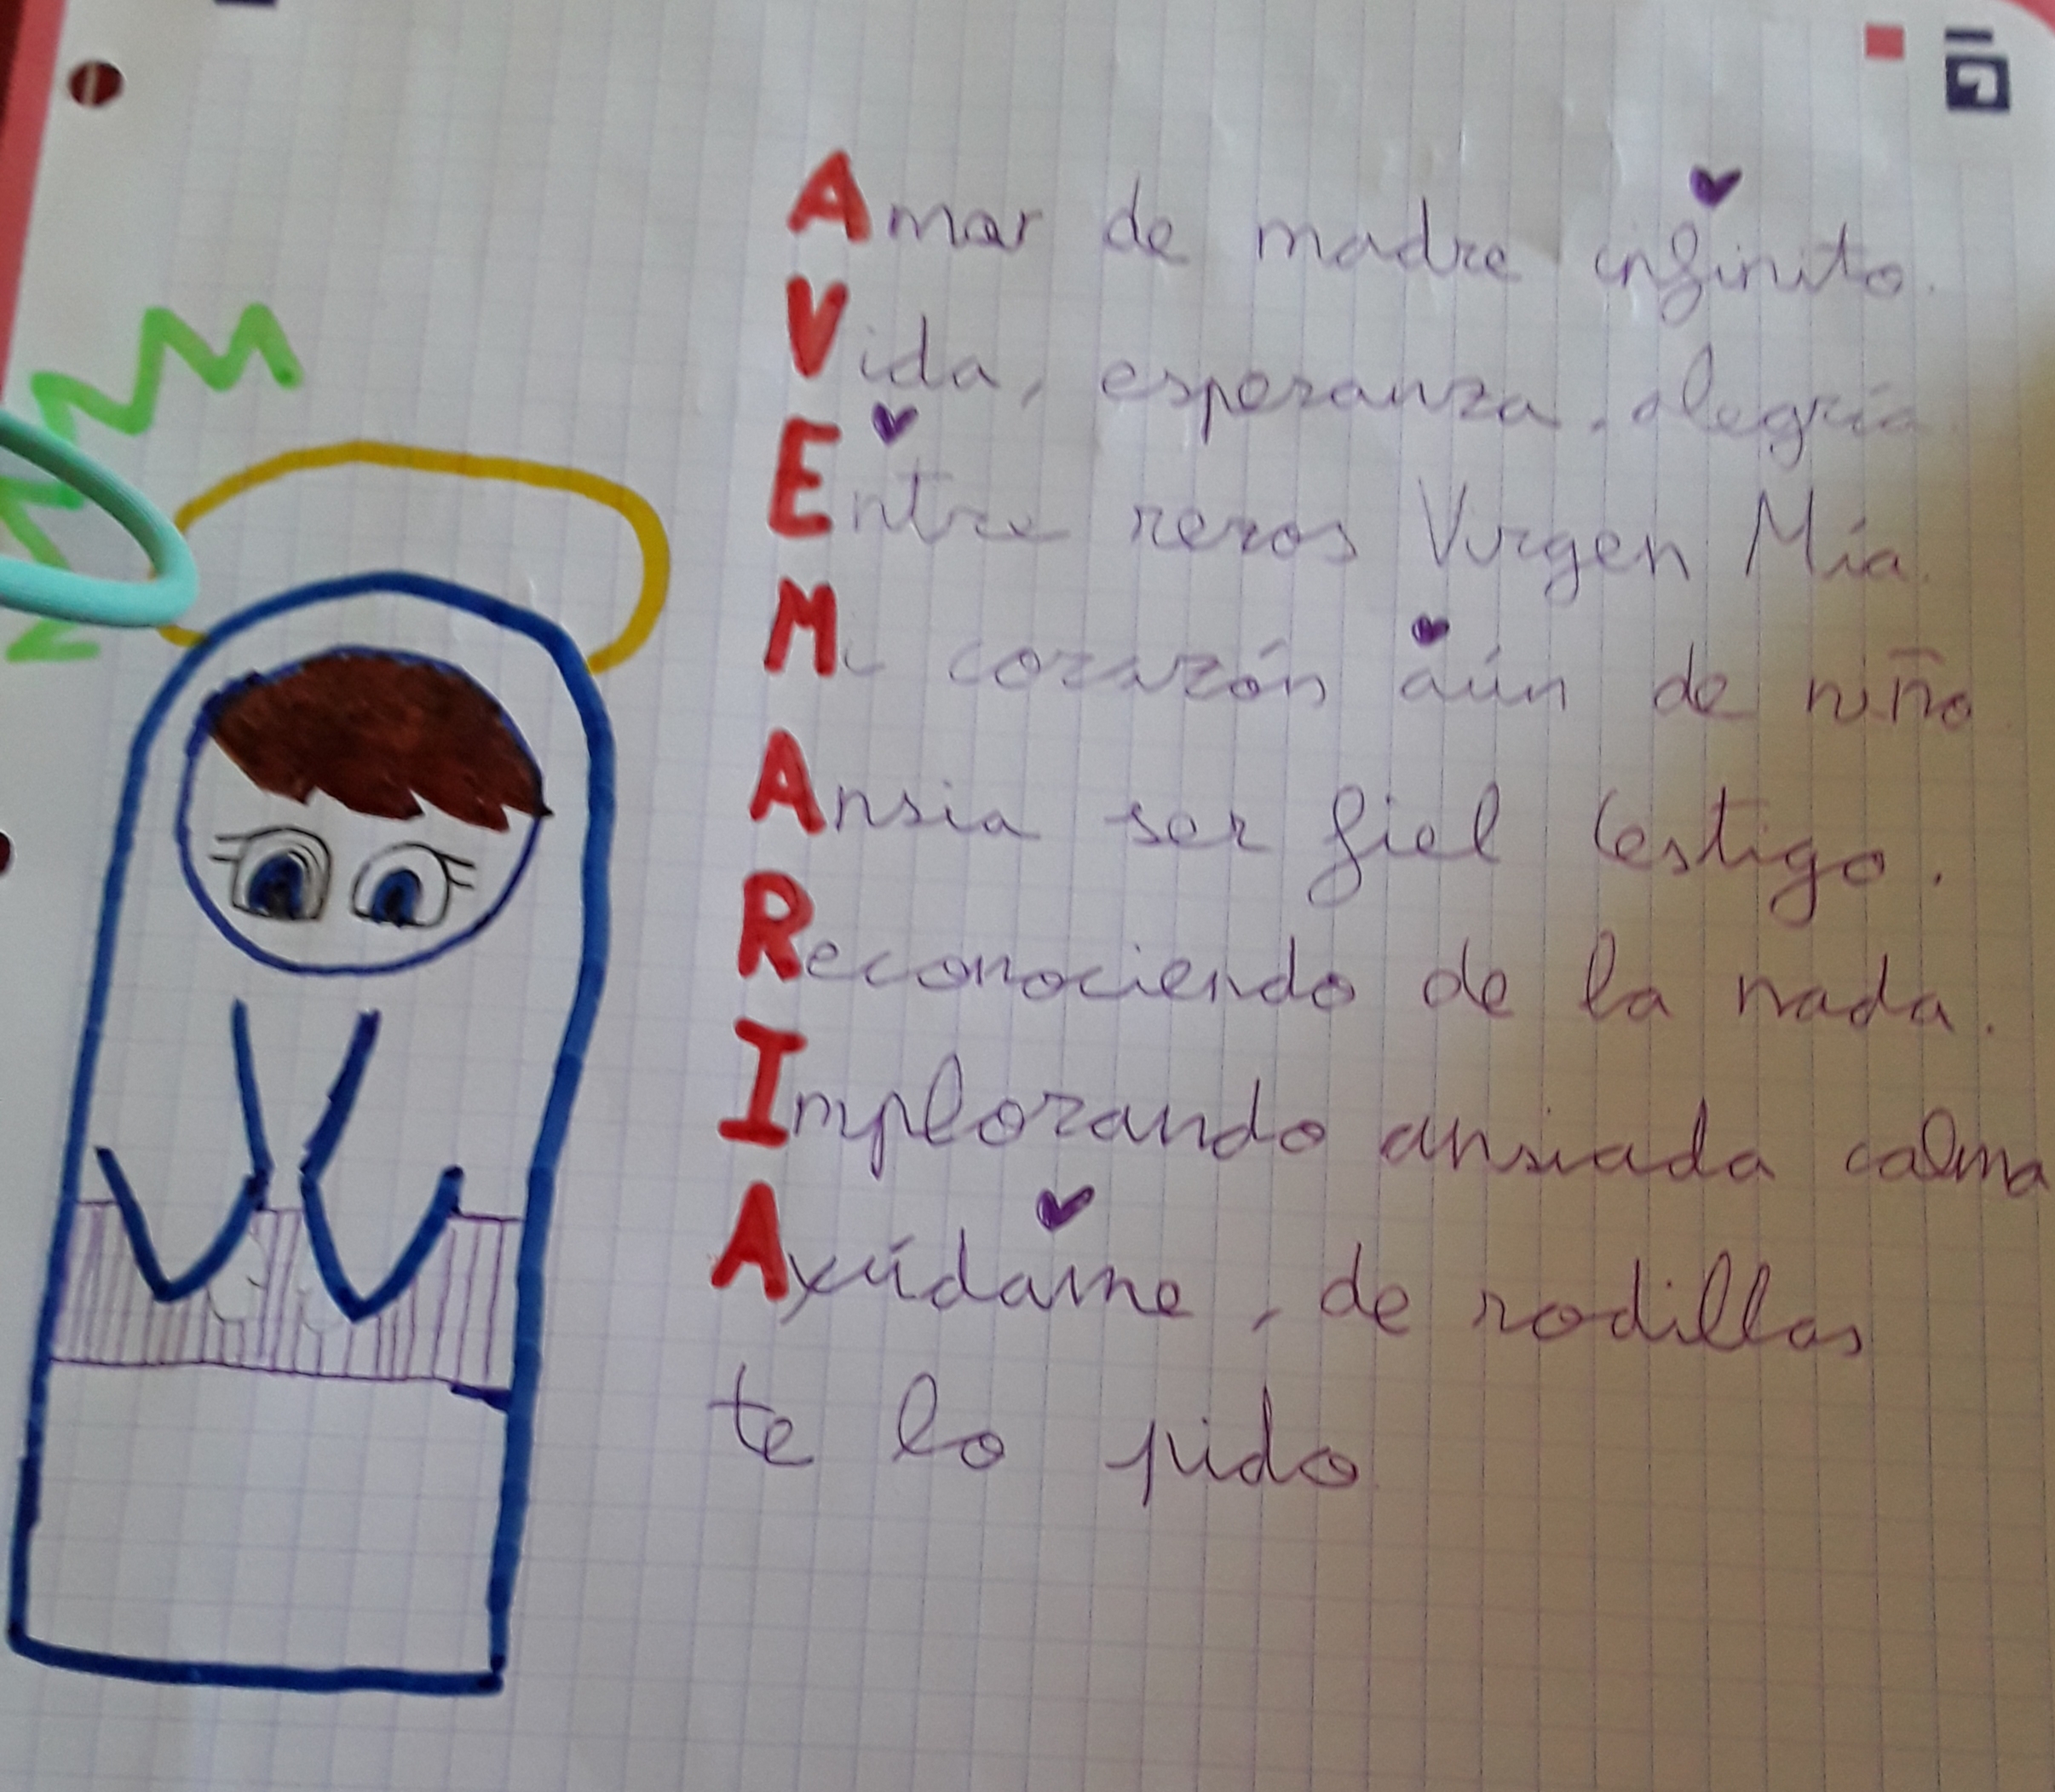 Amor de madre infinito.
Vida, esperanza, alegría
Entre rezos Virgen Mía.
Mi corazón aún de niño
Ansia ser fiel testigo.
Reconociendo de la nada.
Implorando ansiada calma
Ayúdame, de rodillas
te lo pido